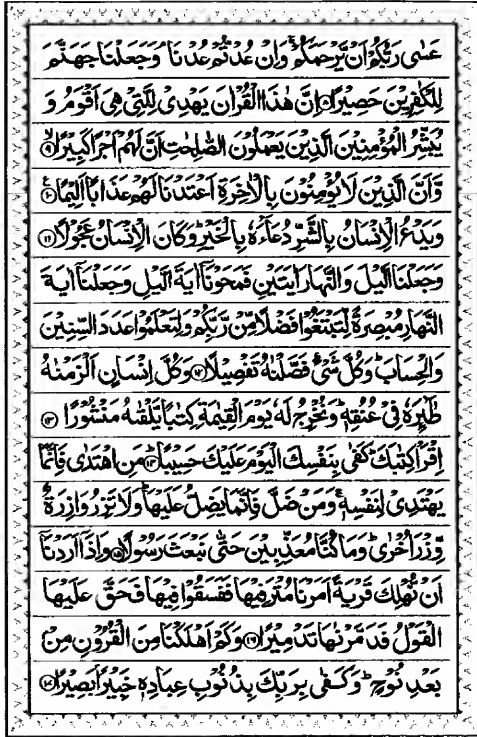 عَسٰى رَبُّكُمْ اَنْ يَّرْحَمَكُمْ ۚ وَاِنْ عُدْتُّمْ عُدْنَا ۘ وَجَعَلْنَا جَهَنَّمَ
لِلْكٰفِرِيْنَ حَصِيْرًا ۝ اِنَّ هٰذَا الْقُرْاٰنَ يَهْدِىْ لِلَّتِىْ هِىَ اَقْوَمُ وَ
يُبَشِّرُ الْمُؤْمِنِيْنَ الَّذِيْنَ يَعْمَلُوْنَ الصّٰلِحٰتِ اَنَّ لَهُمْ اَجْرًا كَبِيْرًا ۝۹
وَّاَنَّ الَّذِيْنَ لَا يُؤْمِنُوْنَ بِالْاٰخِرَةِ اَعْتَدْنَا لَهُمْ عَذَابًا اَلِيْمًا ۝۱۰
وَيَدْعُ الْاِنْسَانُ بِالشَّرِّ دُعَآءَهٗ بِالْخَيْرِ ؕ وَكَانَ الْاِنْسَانُ عَجُوْلًا ۝۱۱
وَجَعَلْنَا الَّيْلَ وَالنَّهَارَ اٰيَتَيْنِ فَمَحَوْنَاۤ اٰيَةَ الَّيْلِ وَجَعَلْنَاۤ اٰيَةَ
النَّهَارِ مُبْصِرَةً لِّتَبْتَغُوْا فَضْلًا مِّنْ رَّبِّكُمْ وَلِتَعْلَمُوْا عَدَدَ السِّنِيْنَ
وَالْحِسَابَ ؕ وَكُلَّ شَىْءٍ فَصَّلْنٰهُ تَفْصِيْلًا ۝۱۲ وَكُلَّ اِنْسَانٍ اَلْزَمْنٰهُ
طٰٓئِرَهٗ فِىْ عُنُقِهٖ ؕ وَنُخْرِجُ لَهٗ يَوْمَ الْقِيٰمَةِ كِتٰبًا يَّلْقٰىهُ مَنْشُوْرًا ۝۱۳
اِقْرَاْ كِتٰبَكَ ؕ كَفٰى بِنَفْسِكَ الْيَوْمَ عَلَيْكَ حَسِيْبًا ۝۱۴ مَنِ اهْتَدٰى فَاِنَّمَا
يَهْتَدِىْ لِنَفْسِهٖ ۚ وَمَنْ ضَلَّ فَاِنَّمَا يَضِلُّ عَلَيْهَا ؕ وَلَا تَزِرُ وَازِرَةٌ
وِّزْرَ اُخْرٰى ؕ وَمَا كُنَّا مُعَذِّبِيْنَ حَتّٰى نَبْعَثَ رَسُوْلًا ۝۱۵ وَاِذَاۤ اَرَدْنَاۤ
اَنْ نُّهْلِكَ قَرْيَةً اَمَرْنَا مُتْرَفِيْهَا فَفَسَقُوْا فِيْهَا فَحَقَّ عَلَيْهَا
الْقَوْلُ فَدَمَّرْنٰهَا تَدْمِيْرًا ۝۱۶ وَكَمْ اَهْلَكْنَا مِنَ الْقُرُوْنِ مِنْۢ
بَعْدِ نُوْحٍ ؕ وَكَفٰى بِرَبِّكَ بِذُنُوْبِ عِبَادِهٖ خَبِيْرًۢا بَصِيْرًا ۝۱۷